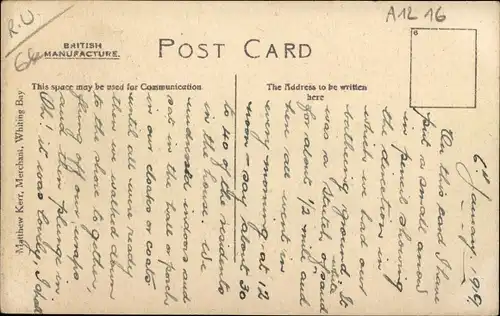 R.U.
64
A12 16
BRITISH
MANUFACTURE.
POST CARD
6
This space may be used for Communication
The Address to be written
here
Matthew Kerr, Merchant, Whiting Bay
6th January, 1919,
On this card I have
put a small arrow
in pencil showing
the direction in
which we had our
bathing ground. It
was a stretch of sand
for about 1/2 mile and
there all went in
every morning at 12
noon - say about 30
to 40 of the residents
in the house. We
undressed indoors and
sat in the hall or porch
in our cloaks or coats
until all were ready
then we walked down
to the shore together,
flung off our wraps
and then plunge in
Oh! it was lovely, I did